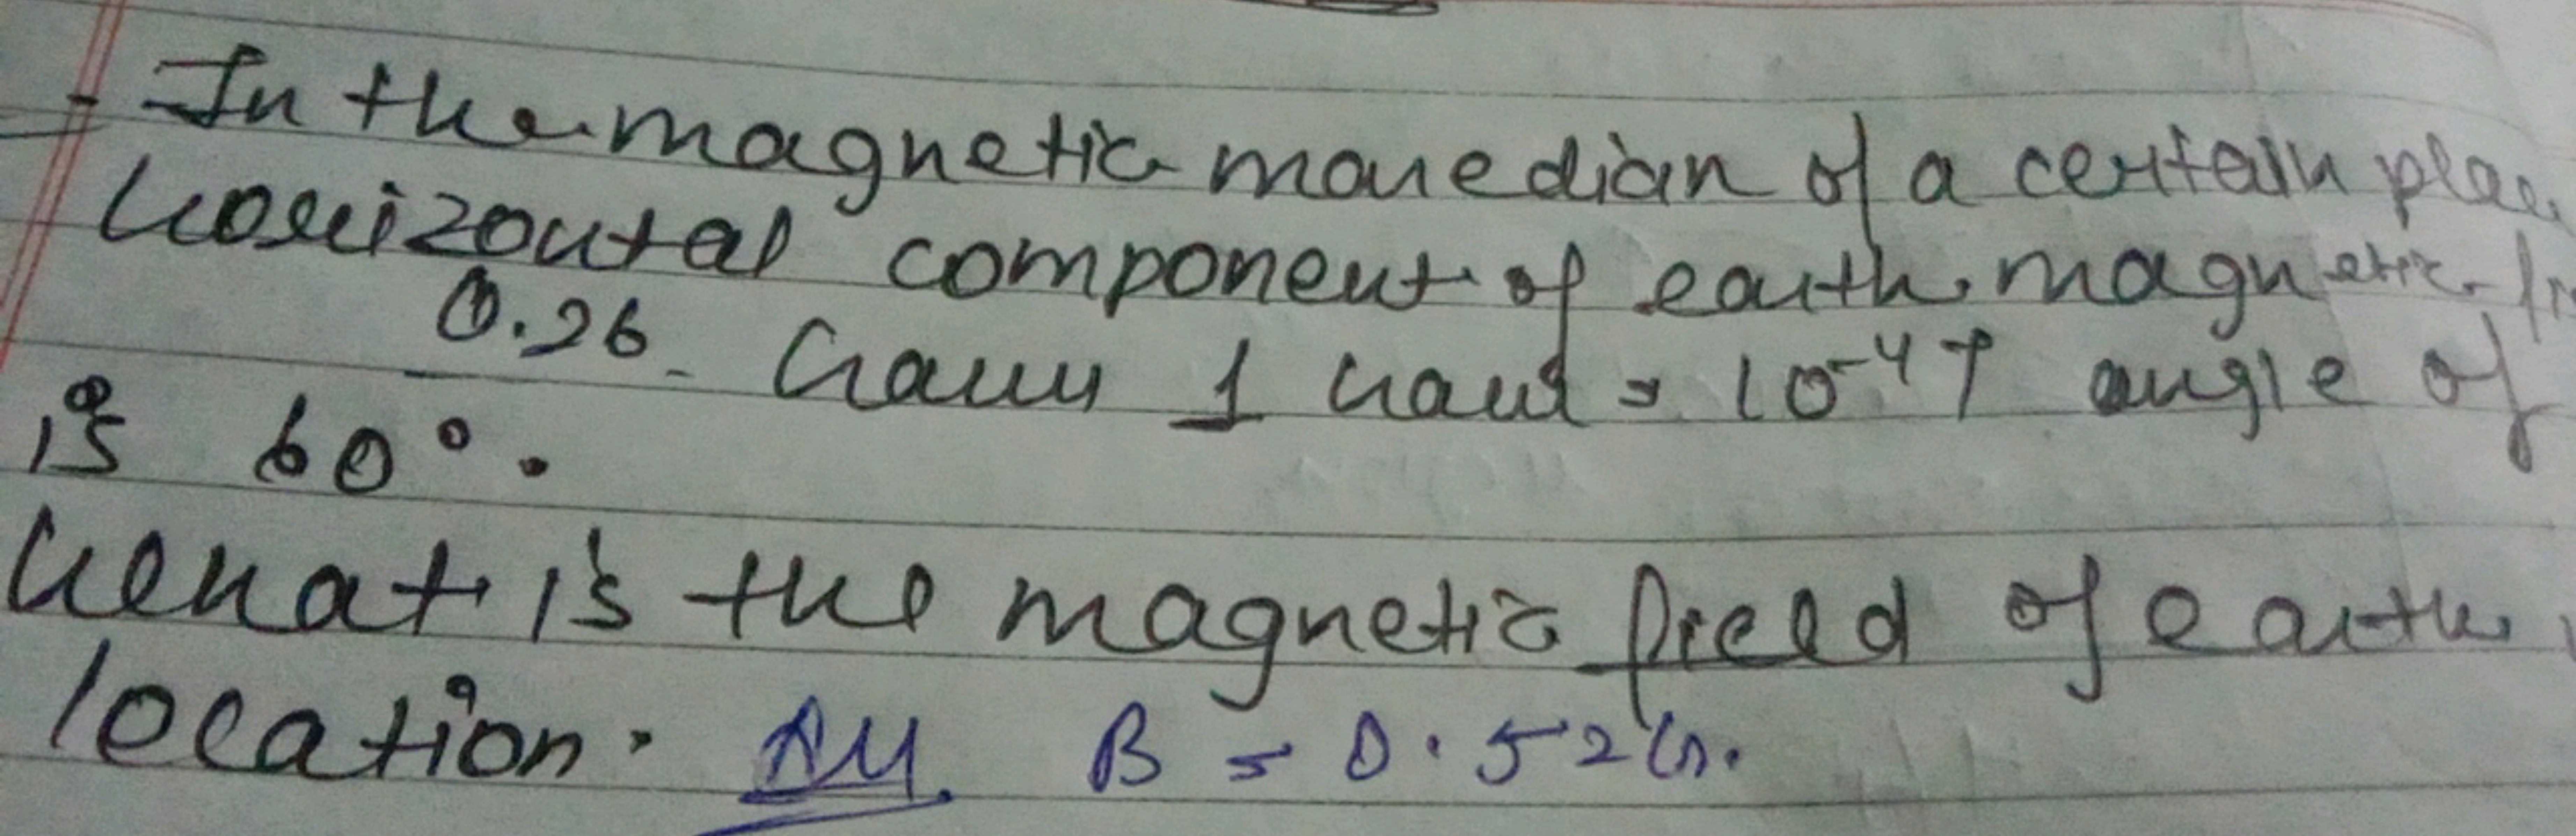 - In the magnetic maredian of a certain place
horizontal component of earth magnetic
0.26 Gauss 1 Gauss = 10⁻⁴T angle of
is 60°.
What is the magnetic field of earth
location. Ans B = 0.52G.